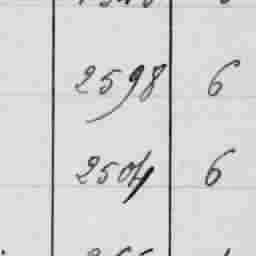 2598 6
2504 6